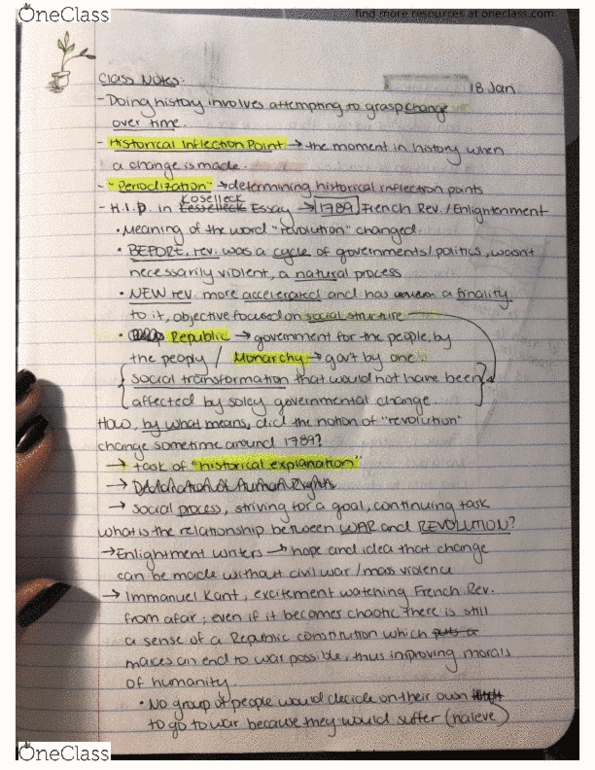 OneClass
find more resources at oneclass.com
Class Notes:
18 Jan
- Doing history involves attempting to grasp change
over time.
- Historical Inflection Point → the moment in history when
a change is made.
- "Periodization" → determining historical inflection points
Koselleck
- H.I.P. in Essay → 1789 French Rev./Enlightenment
• Meaning of the word "revolution" changed.
• BEFORE, rev. was a cycle of governments/politics, wasn't
necessarily violent, a natural process
• NEW rev. more accelerated and has a finality
to it, objective focused on social structure
• Republic → government for the people, by
the people / Monarchy → gov't by one.
{social transformation that would not have been}
affected by soley governmental change.
How, by what means, did the notion of "revolution"
change sometime around 1789?
→ task of "historical explanation"
→ Declaration of Human Rights
→ social process, striving for a goal, continuing task
what is the relationship between WAR and REVOLUTION?
→ Enlightment writers → hope and idea that change
can be made without civil war/mass violence
→ Immanuel Kant, excitement watching French Rev.
from afar; even if it becomes chaotic there is still
a sense of a Republic constitution which
makes an end to war possible, thus improving morals
of humanity.
• No group of people would decide on their own
to go to war because they would suffer (naieve)
OneClass